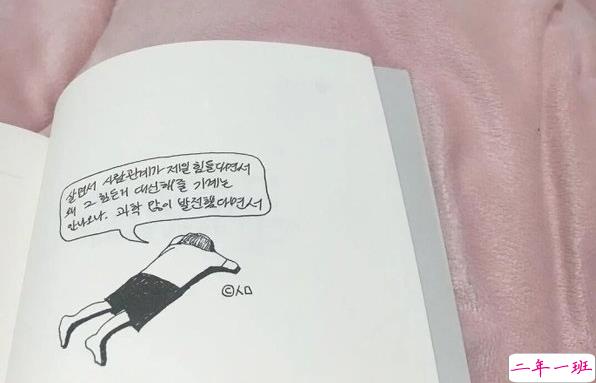 살면서 사람관계가 제일 힘들다면서
왜 그 힘든거 대신해줄 기계는
안나오나. 과학 많이 발전했다면서
©시ㅁ
二年一班